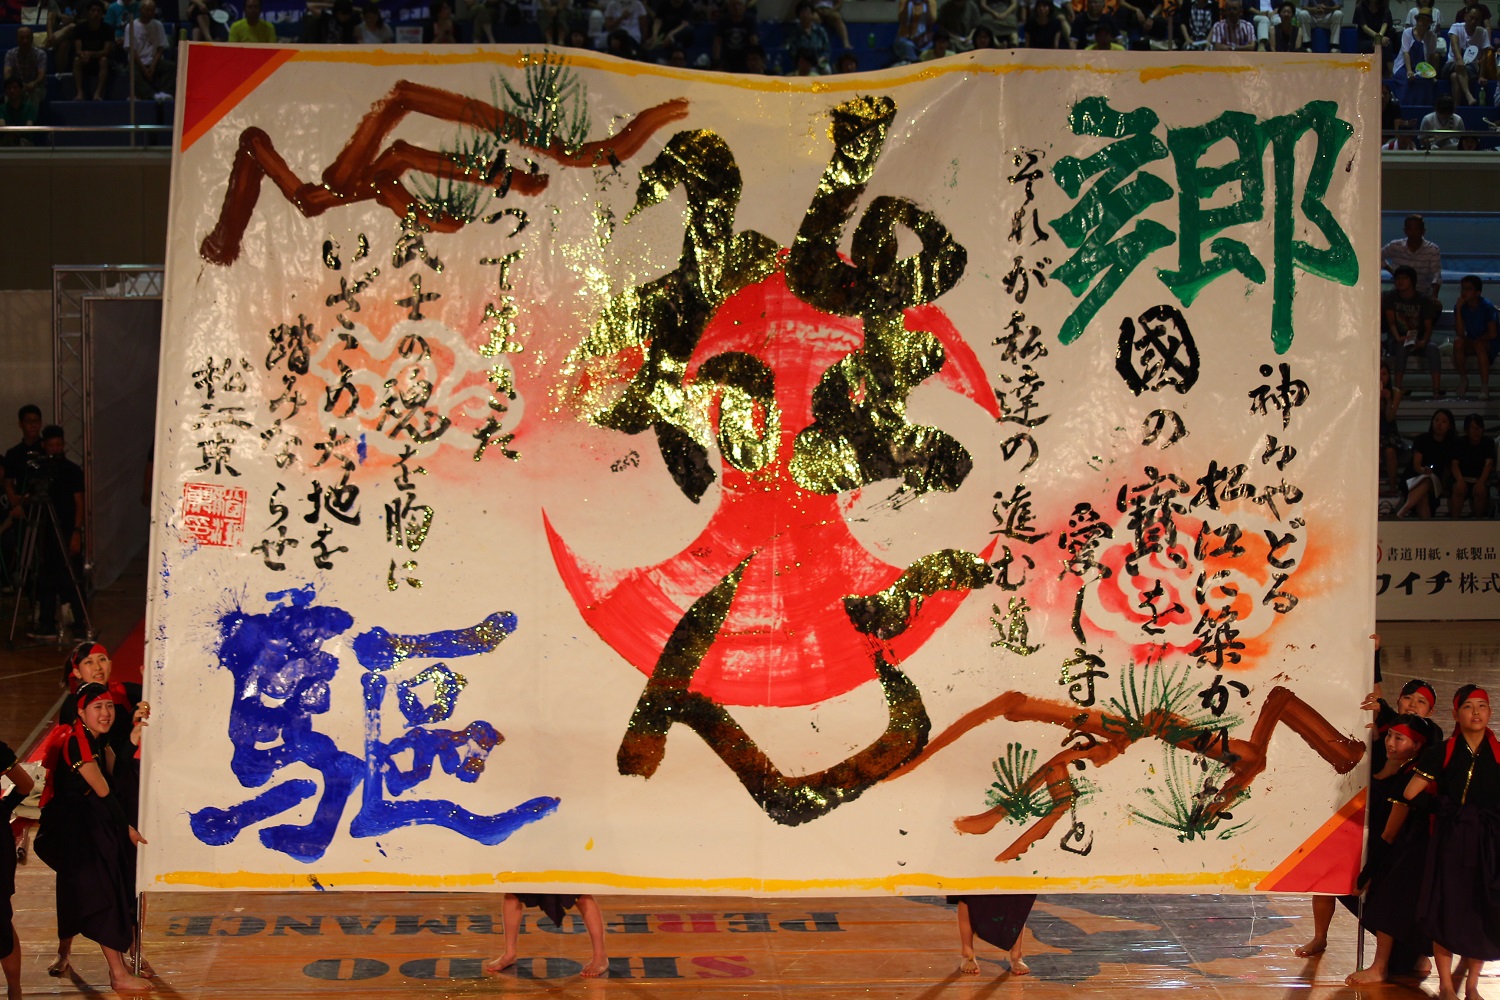 郷
神々やどる
松江に築かれた
國の寶を
愛し守ること
それが私達の進む道
かつて生きた
武士の魂を胸に
いざこの大地を
踏みならせ
驅
松江東
書道用紙・紙製品
ワイチ株式
SHODO
PERFORMANCE